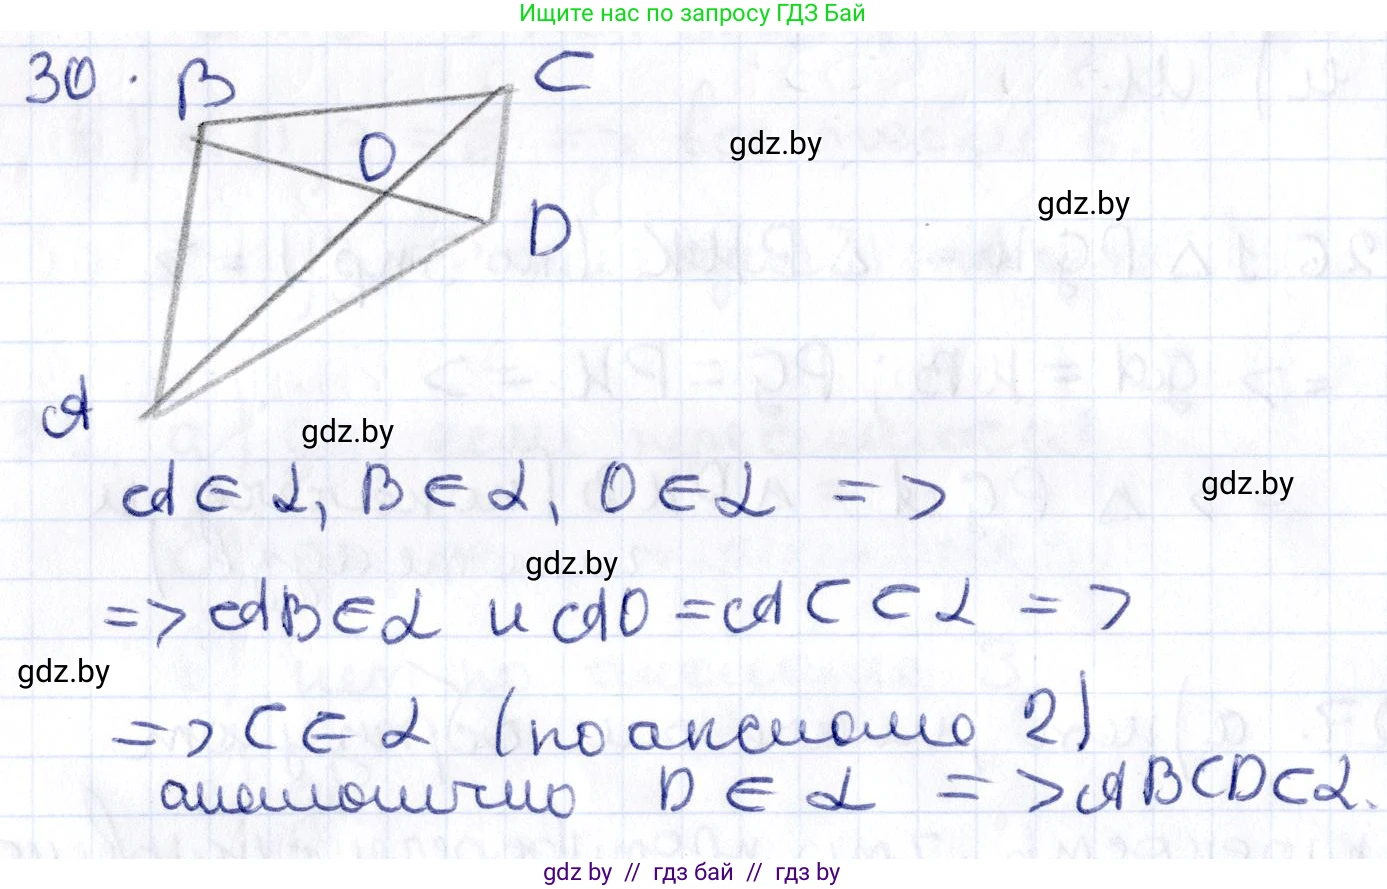 Ищите нас по запросу ГДЗ Бай
30. B C
O
gdz.by
gdz.by
D
A
gdz.by
A ∈ α, B ∈ α, O ∈ α =>
gdz.by
gdz.by
=> AB ∈ α и AO = AC ⊂ α =>
gdz.by
=> C ∈ α (по аксиоме 2)
аналогично D ∈ α => ABCD ⊂ α.
gdz by // гдз бай // гдз by